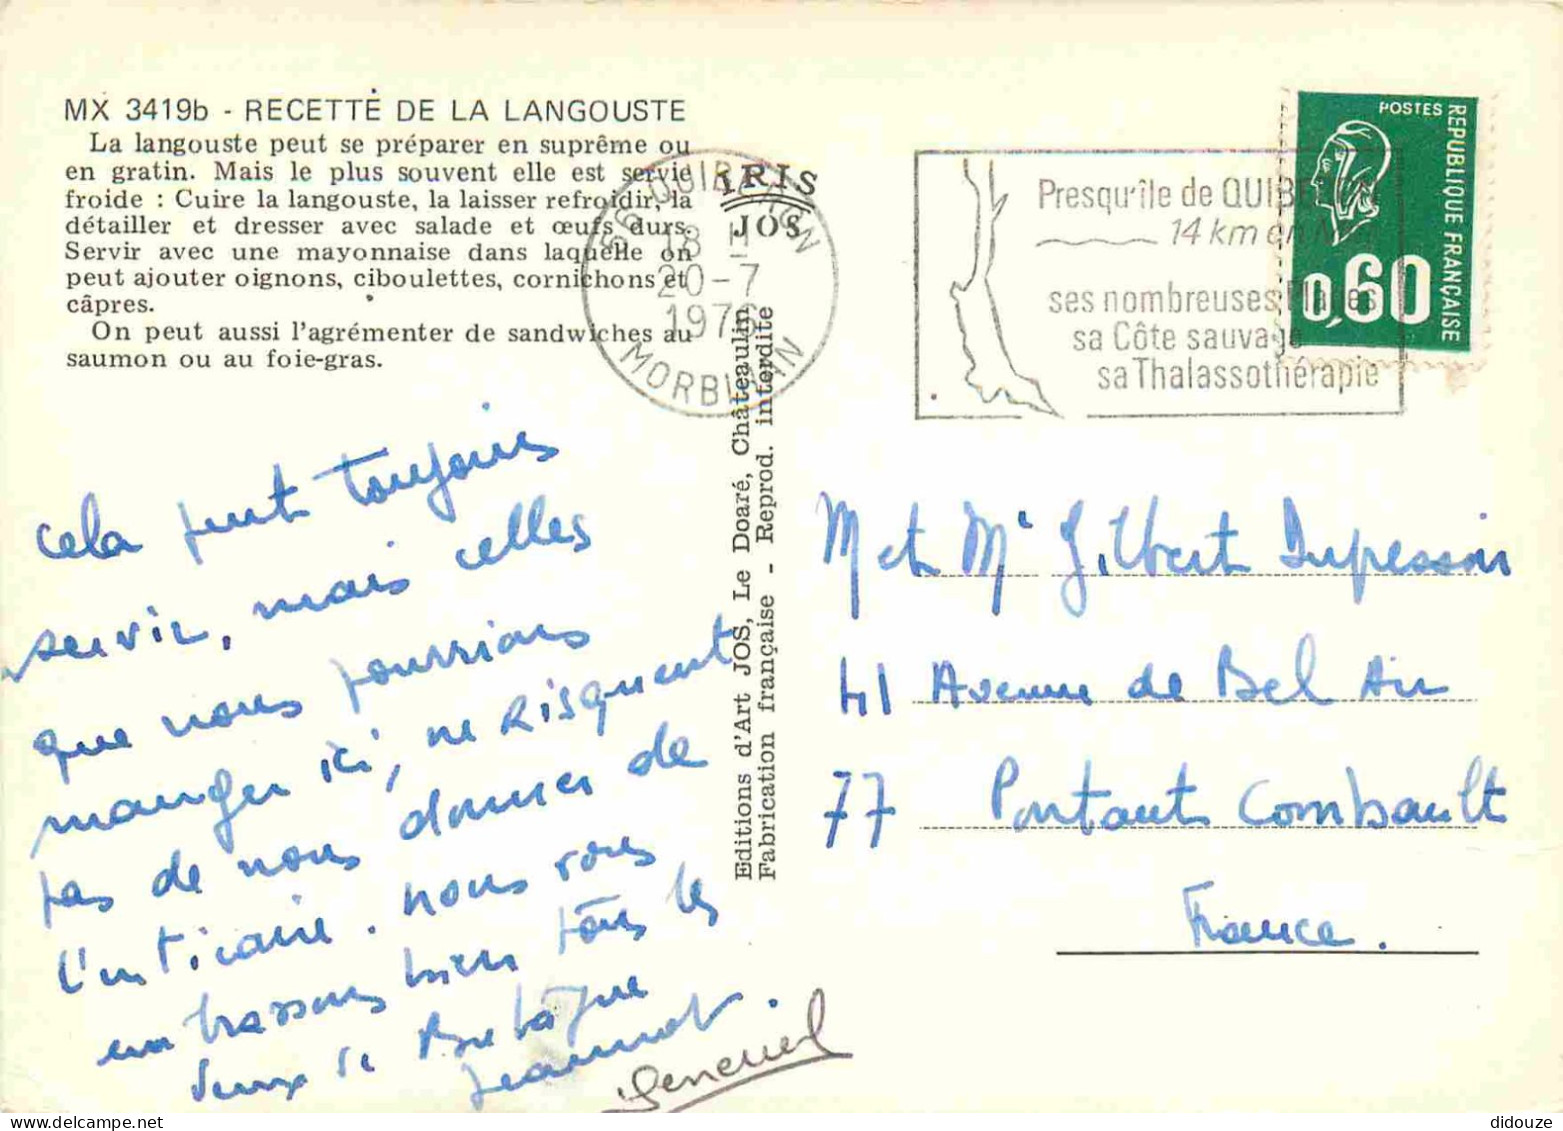 MX 3419b - RECETTE DE LA LANGOUSTE
La langouste peut se préparer en suprême ou
en gratin. Mais le plus souvent elle est servie
froide : Cuire la langouste, la laisser refroidir, la
détailler et dresser avec salade et œufs durs.
Servir avec une mayonnaise dans laquelle on
peut ajouter oignons, ciboulettes, cornichons et
câpres.
On peut aussi l'agrémenter de sandwiches au
saumon ou au foie-gras.
IRIS
JOS
56 QUIBERON
18 H
20-7
1976
MORBIHAN
Presqu'île de QUIBERON
14 km en Mer
ses nombreuses Plages
sa Côte sauvage
sa Thalassothérapie
POSTES
REPUBLIQUE FRANÇAISE
0,60
Editions d'Art JOS, Le Doaré, Châteaulin
Fabrication française - Reprod. interdite
cela peut toujours
servir, mais celles
que nous pourrions
manger ici, ne risquent
pas de nous donner de
l'urticaire. nous vous
embrassons bien tous les
deux de Bretagne
Jeannot.
M et Me Gilbert Dupressoir
41 Avenue de Bel Air
77 Pontault Combault
France.
didouze